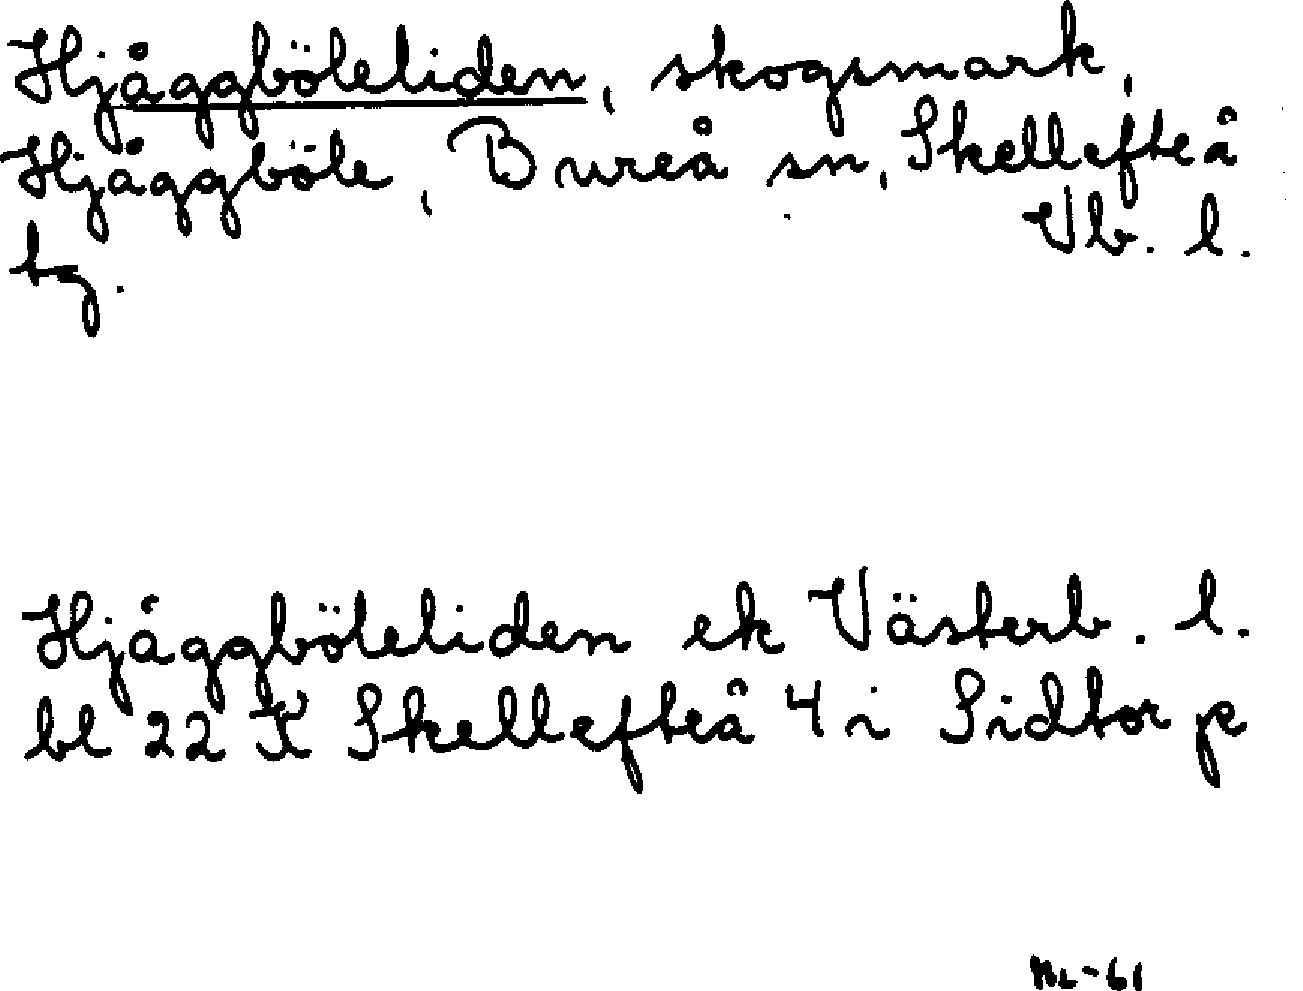 Hjåggböleliden, skogsmark,
Hjåggböle, Bureå sn, Skellefteå
tg. Vb. l.
Hjåggböleliden ek Västerb. l.
bl 22 K Skellefteå 4 i Sidtorp
ML-61